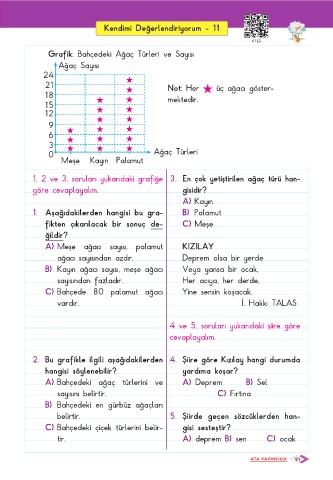 Kendimi Değerlendiriyorum - 11
Grafik: Bahçedeki Ağaç Türleri ve Sayısı
Ağaç Sayısı
24
21
18
15
12
9
6
3
0
Meşe Kayın Palamut
Ağaç Türleri
Not: Her ★ üç ağacı göster-
mektedir.
1, 2 ve 3. soruları yukarıdaki grafiğe
göre cevaplayalım.
1. Aşağıdakilerden hangisi bu gra-
fikten çıkarılacak bir sonuç de-
ğildir?
A) Meşe ağacı sayısı, palamut
ağacı sayısından azdır.
B) Kayın ağacı sayısı, meşe ağacı
sayısından fazladır.
C) Bahçede 80 palamut ağacı
vardır.
2. Bu grafikle ilgili aşağıdakilerden
hangisi söylenebilir?
A) Bahçedeki ağaç türlerini ve
sayısını belirtir.
B) Bahçedeki en gürbüz ağaçları
belirtir.
C) Bahçedeki çiçek türlerini belir-
tir.
3. En çok yetiştirilen ağaç türü han-
gisidir?
A) Kayın
B) Palamut
C) Meşe
KIZILAY
Deprem olsa bir yerde
Veya yansa bir ocak,
Her acıya, her derde,
Yine sensin koşacak.
İ. Hakkı TALAS
4 ve 5. soruları yukarıdaki şiire göre
cevaplayalım.
4. Şiire göre Kızılay hangi durumda
yardıma koşar?
A) Deprem B) Sel
C) Fırtına
5. Şiirde geçen sözcüklerden han-
gisi sesteştir?
A) deprem B) sen C) ocak
ATA YAYINCILIK
91